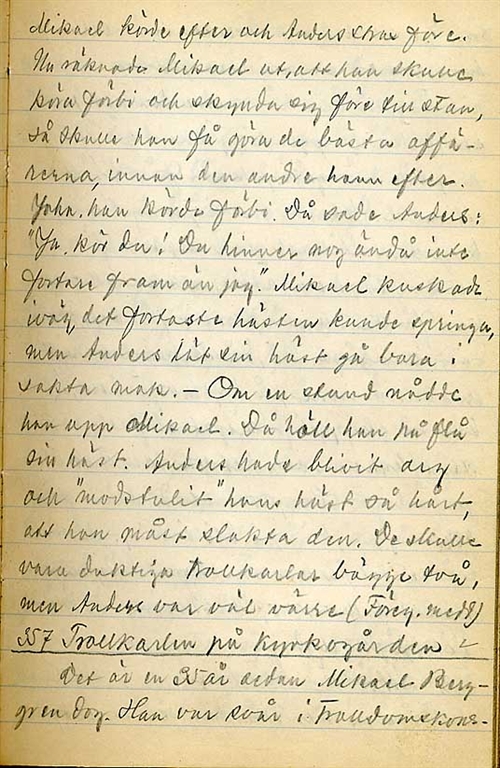 Mikael körde efter och Anders strax före.
Nu räknade Mikael ut, att han skulle
köra förbi och skynda sig före till stan,
så skulle han få göra de bästa affä-
rerna, innan den andre hann efter.
Joha, han körde förbi. Då sade Anders:
"Ja, kör du! Du hinner nog ändå inte
fortare fram än jag." Mikael kuskade
iväg, det fortaste hästen kunde springa,
men Anders lät sin häst gå bara i
sakta mak. – Om en stund nådde
han upp Mikael. Då höll han på flå
sin häst. Anders hade blivit arg
och "modstulit" hans häst så hårt,
att han måst slakta den. De skulle
vara duktiga trollkarlar bägge två,
men Anders var väl värre (Föreg. medd)
357 Trollkarlen på kyrkogården
Det är en 35 år sedan Mikael Berg-
gren dog. Han var svår i trolldomskons-